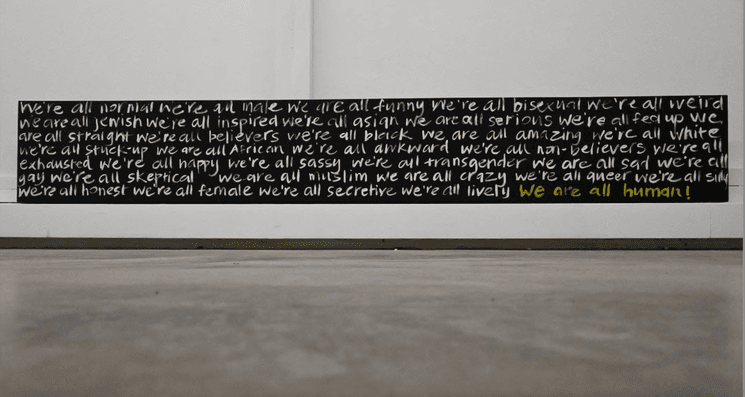 we're all normal we're all male we are all funny we're all bisexual we're all weird
we are all jewish we're all inspired we're all asian we are all serious we're all fed up we
are all straight we're all believers we're all black we are all amazing we're all white
we're all stuck-up we are all African we're all awkward we're all non-believers we're all
exhausted we're all happy we're all sassy we're all transgender we are all sad we're all
gay we're all skeptical we are all muslim we are all crazy we're all queer we're all silly
we're all honest we're all female we're all secretive we're all lively we are all human!